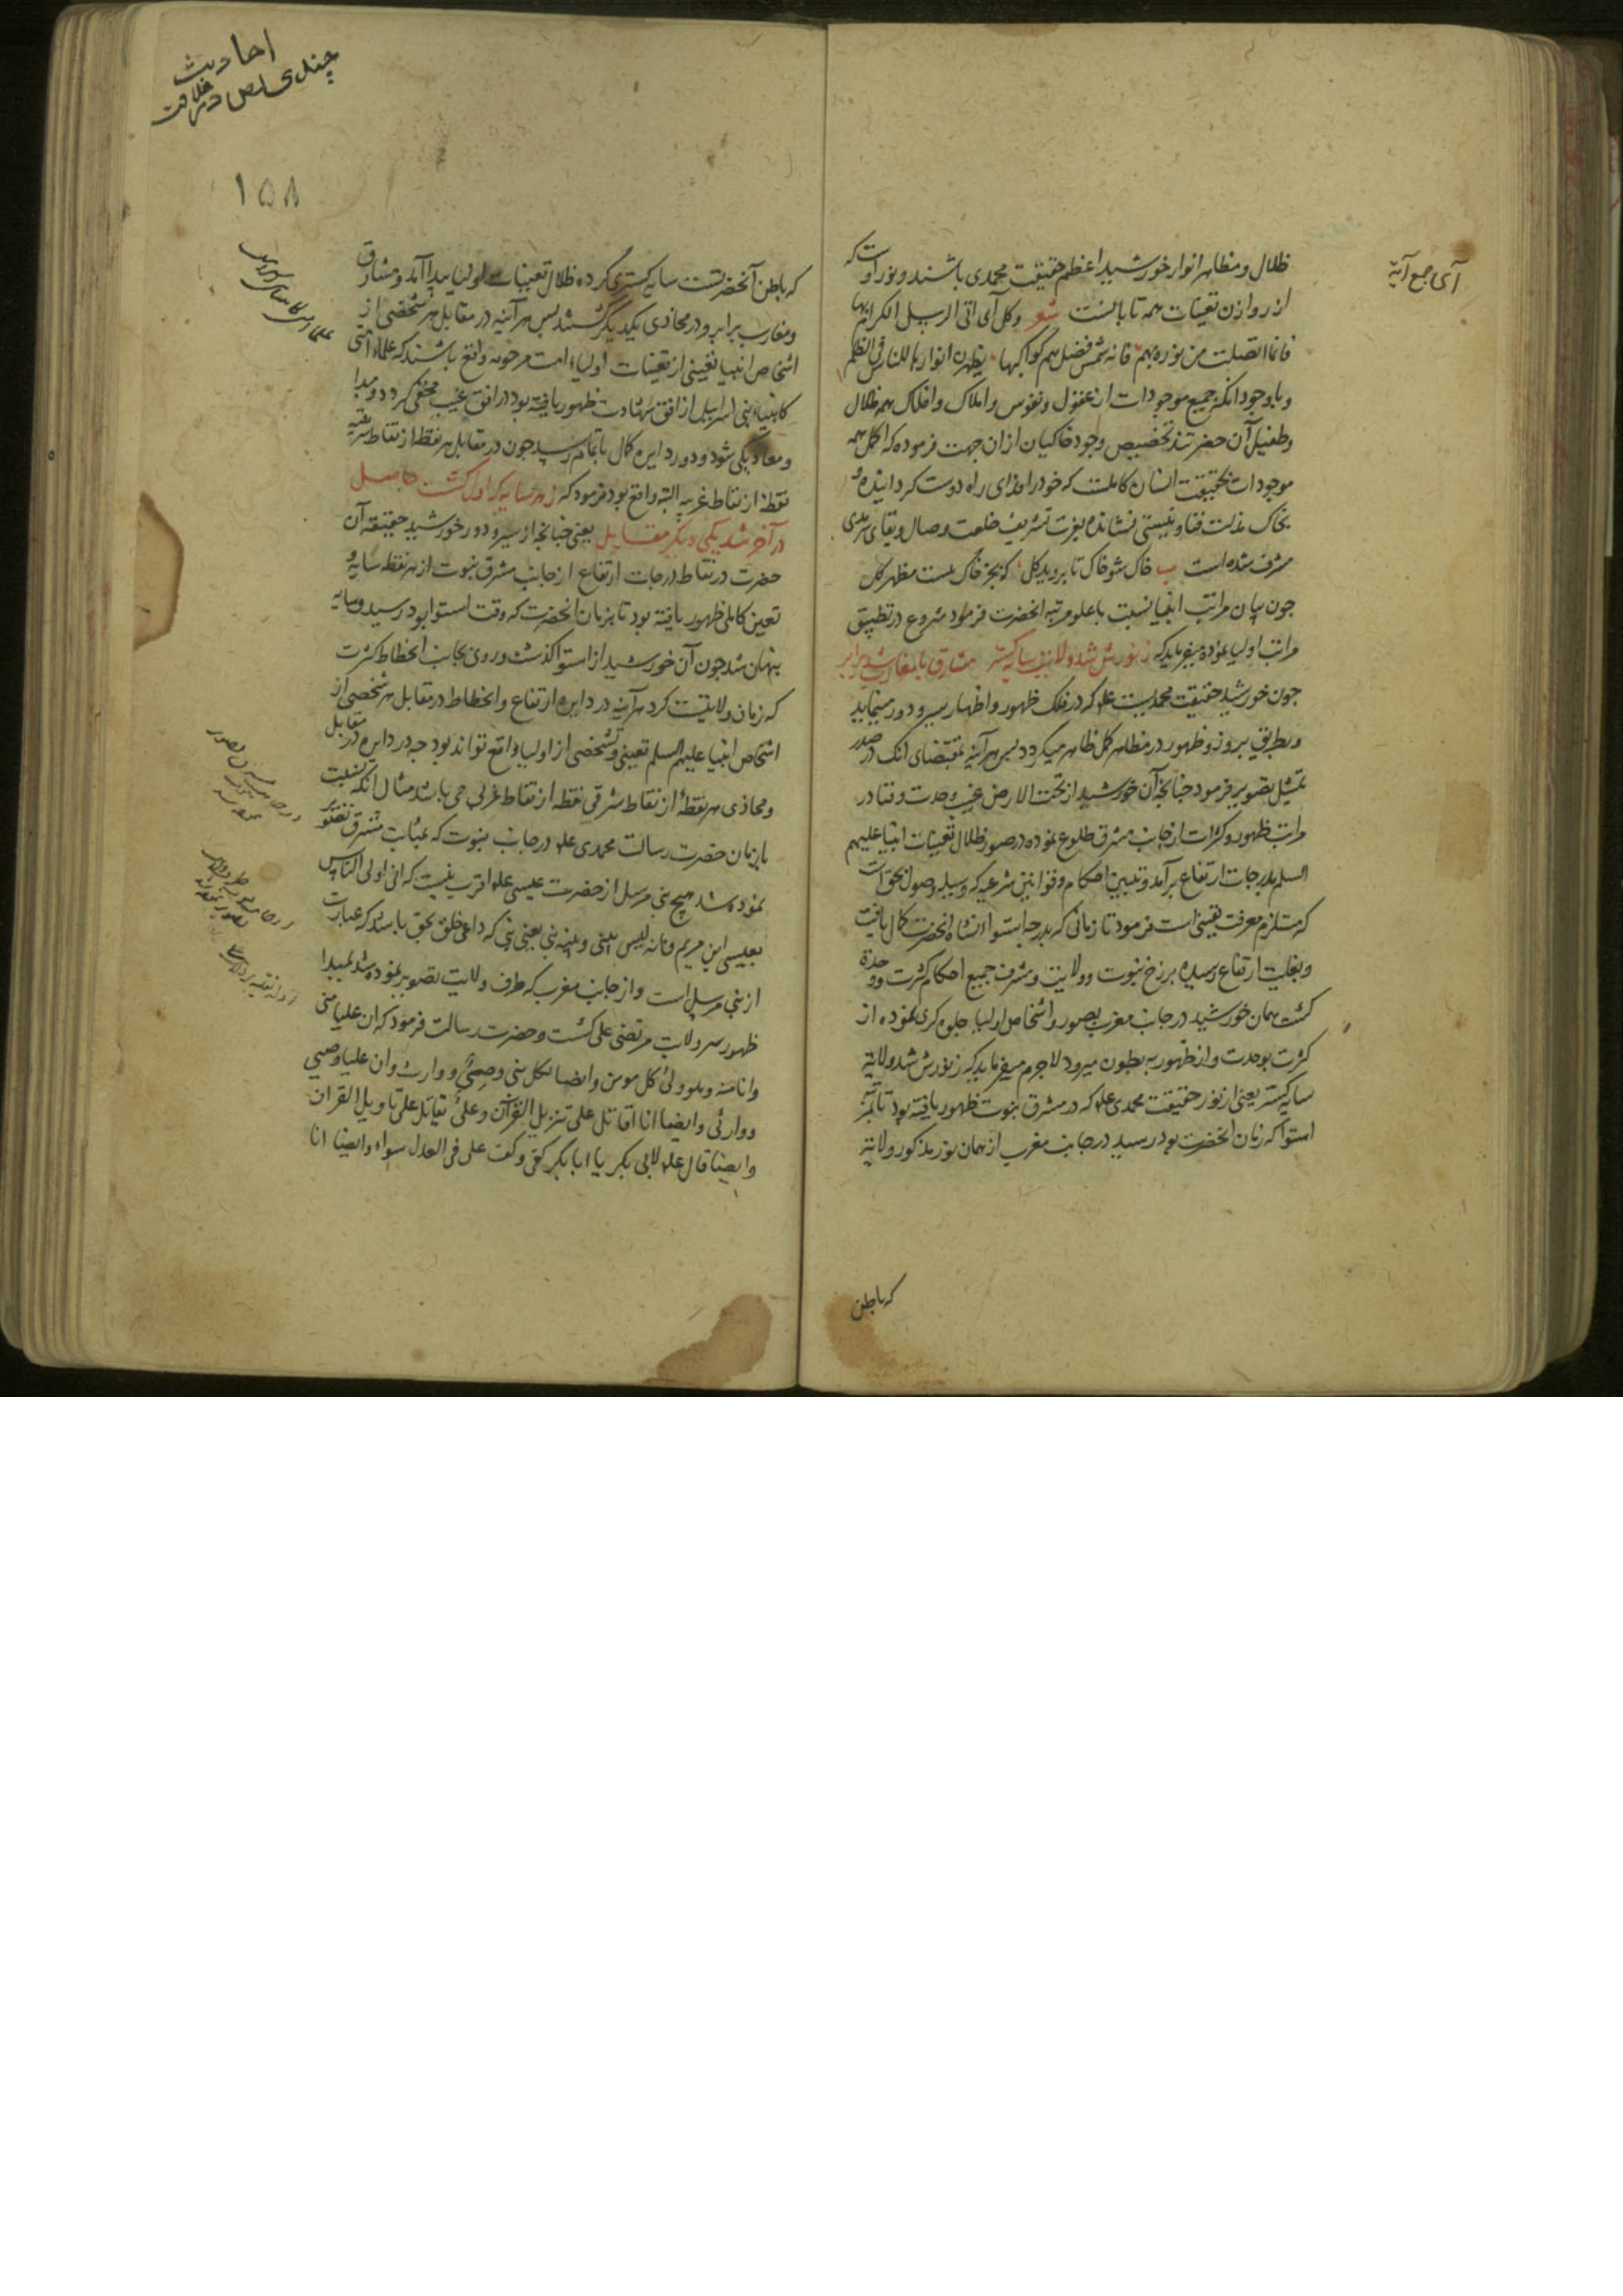 آی جمع آیة
ظلال و مظاهر انوار خورشید اعظم حقیقت محمدی باشند و نور اوست که
از روازن تعینات همه تابانست شعر وکل آی اتی الرسل الکرام بها
فانما اتصلت من نوره بهم فانه شمس فضل هم کواکبها یظهرن انوارها للناس فی الظلم
و با وجود انکه جمیع موجودات از عقول و نفوس و املاک و افلاک همه ظلال
و طفیل آن حضرتند تخصیص وجود خاکیان ازان جهت فرموده که اکمل همه
موجودات بحقیقت انسان کاملست که خود را در راه دوست کردانیده و
بخاک مذلت فنا و نیستی نشانده بعزت تشریف خلعت وصال و بقای سرمدی
مشرف شده است خاک شو خاک تا بروید کل که بجز خاک نیست مظهر کل
جون بیان مراتب انبیا نسبت با علو مرتبه انحضرت فرمود شروع در تطبیق
مراتب اولیا نموده میفرماید که ز نورش شد ولایت سایه کستر مشارق با مغارب شد برابر
جون خورشید حقیقت محمدیست علم که در فلک ظهور و اظهار سیر و دور مینماید
و بطریق بروز و ظهور در مظاهر کمل ظاهر میکردد بس هر آینه بمقتضای انک در صدر
تمثیل تصویر فرمود جنانجه آن خورشید از تحت الارض غیب وحدت و فنا در
مراتب ظهور و کثرات از جانب مشرق طلوع نموده در صور ظلال تعینات انبیا علیهم
السلم بدرجات ارتفاع برآمد و تبیین احکام و قوانین شرعیه که وسیله وصول بحق است
که مستلزم معرفت یقینی است فرمود تا زمانی که بدرجه استوا انشاه انحضرت کمال یافت
و بغایت ارتفاع رسیده برزخ نبوت و ولایت و مشرف جمیع احکام کثرت و وحدة
کشت همان خورشید در جانب مغرب بصور و اشخاص اولیا جلوه کری نموده از
کثرت بوحدت و از ظهور به بطون میرود لاجرم میفرماید که ز نورش شد ولایة
سایه کستر یعنی از نور حقیقت محمدی علم که در مشرق نبوت ظهور یافته بود تا بمرتبه
استوا که زمان انحضرت بود رسید در جانب مغرب از همان نور مذکور ولایة
که باطن
احادیث
چندی
۱۵۸
که باطن آنحضرتست سایه کستری کرده ظلال تعینات اولیا پیدا آمد و مشارق
و مغارب برابر و در محاذی یکدیکر کشتند بس هر آینه در مقابل هر شخصی از
اشخاص انبیا تعینی از تعینات اولیاء امت مرحومه واقع باشند که علماء امتی
کانبیاء بنی اسراییل از افق شهادت ظهور یافته بود در افق غیب مختفی کردد و مبدا
و معاد یکی شود و دور دایره کمال باتمام رسید جون در مقابل هر نقطه از نقاط شرقیه
نقطهٔ از نقاط غربیه البته واقع بود فرمود که ز هر سایه که اول کشت حاصل
در آخر شد یکی دیکر مقابل یعنی جنانجه از سیر و دور خورشید حقیقة آن
حضرت در نقاط درجات ارتفاع از جانب مشرق نبوت از هر نقطه سایه و
تعین کاملی ظهور یافته بود تا بزمان انحضرت که وقت استوا بود رسید و سایه
پنهان شد جون آن خورشید از استوا کذشت و روی بجانب انحطاط کثرت
که زمان ولایتست کرد هر آینه در دایره ارتفاع و انحطاط در مقابل هر شخصی از
اشخاص انبیا علیهم السلم تعینی و تشخصی از اولیا واقع تواند بود جه در دایره در مقابل
و محاذی هر نقطهٔ از نقاط شرقی نقطه از نقاط غربی می باشد مثال انکه نسبت
بازمان حضرت رسالت محمدی علم در جانب نبوت که بمثابت مشرق تصویر
نموده شد هیچ نبی مرسل از حضرت عیسی علم اقرب نیست که انی اولی الناس
بعیسی ابن مریم فانه لیس بینی و بینه نبی یعنی نبی که داعی خلق بحق باشد که عبارت
از نبی مرسل است و از جانب مغرب که طرف ولایت تصویر نموده شد مبدا
ظهور سر ولایت مرتضی علی کشت و حضرت رسالت فرمود که ان علیا منی
و انا منه و هو ولی کل مومن و ایضا لکل نبی وصی و وارث و ان علیا وصیی
و وارثی و ایضا انا اقاتل علی تنزیل القرآن و علی یقاتل علی تاویل القران
و ایضا قال علم لابی بکر یا ابا بکر کفی و کف علی فی العدل سواء و ایضا انا